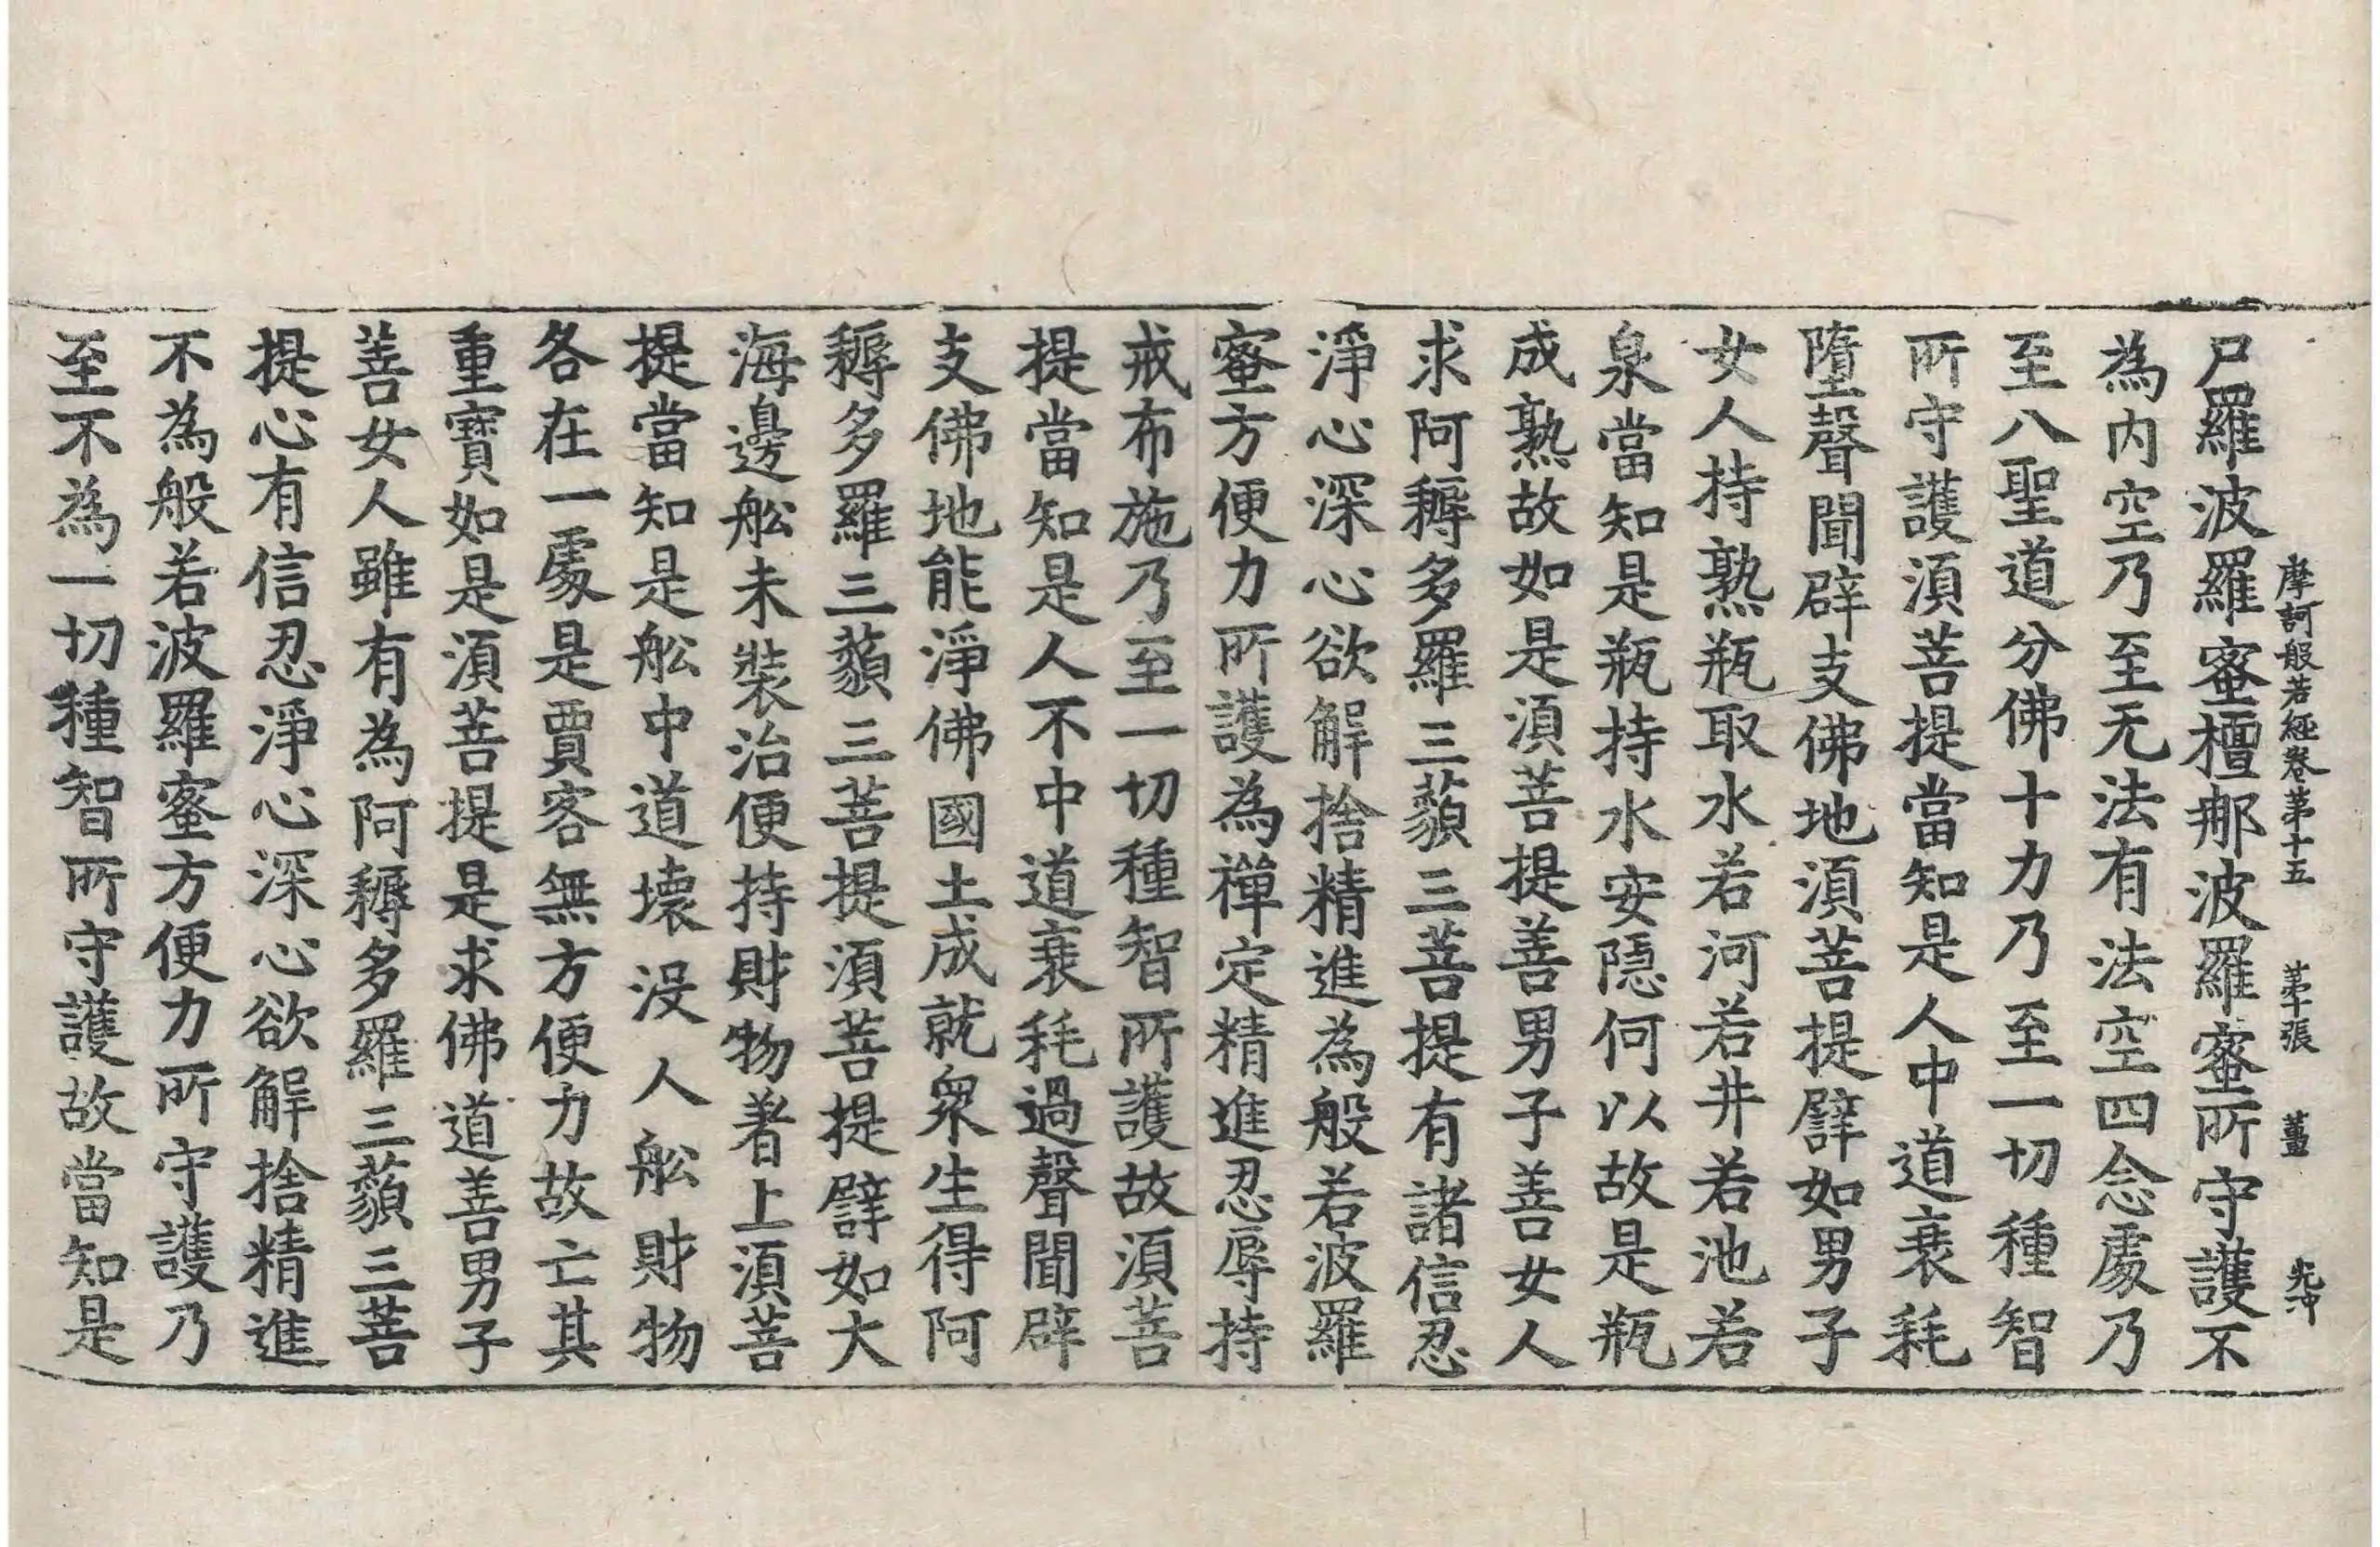 摩訶般若經卷苐十五 苐十張 薑 光冲
尸羅波羅蜜檀那波羅蜜所守護不
為内空乃至无法有法空四念處乃
至八聖道分佛十力乃至一切種智
所守護湏菩提當知是人中道衰耗
墮聲聞辟支佛地湏菩提譬如男子
女人持熟瓶取水若河若井若池若
泉當知是瓶持水安隱何以故是瓶
成熟故如是湏菩提善男子善女人
求阿耨多羅三藐三菩提有諸信忍
淨心深心欲解捨精進為般若波羅
蜜方便力所護為禪定精進忍辱持
戒布施乃至一切種智所護故湏菩
提當知是人不中道衰耗過聲聞辟
支佛地能淨佛國土成就衆生得阿
耨多羅三藐三菩提湏菩提譬如大
海邊舩未裝治便持財物著上湏菩
提當知是舩中道壞没人舩財物
各在一處是賈客無方便力故亡其
重寶如是湏菩提是求佛道善男子
善女人雖有為阿耨多羅三藐三菩
提心有信忍淨心深心欲解捨精進
不為般若波羅蜜方便力所守護乃
至不為一切種智所守護故當知是